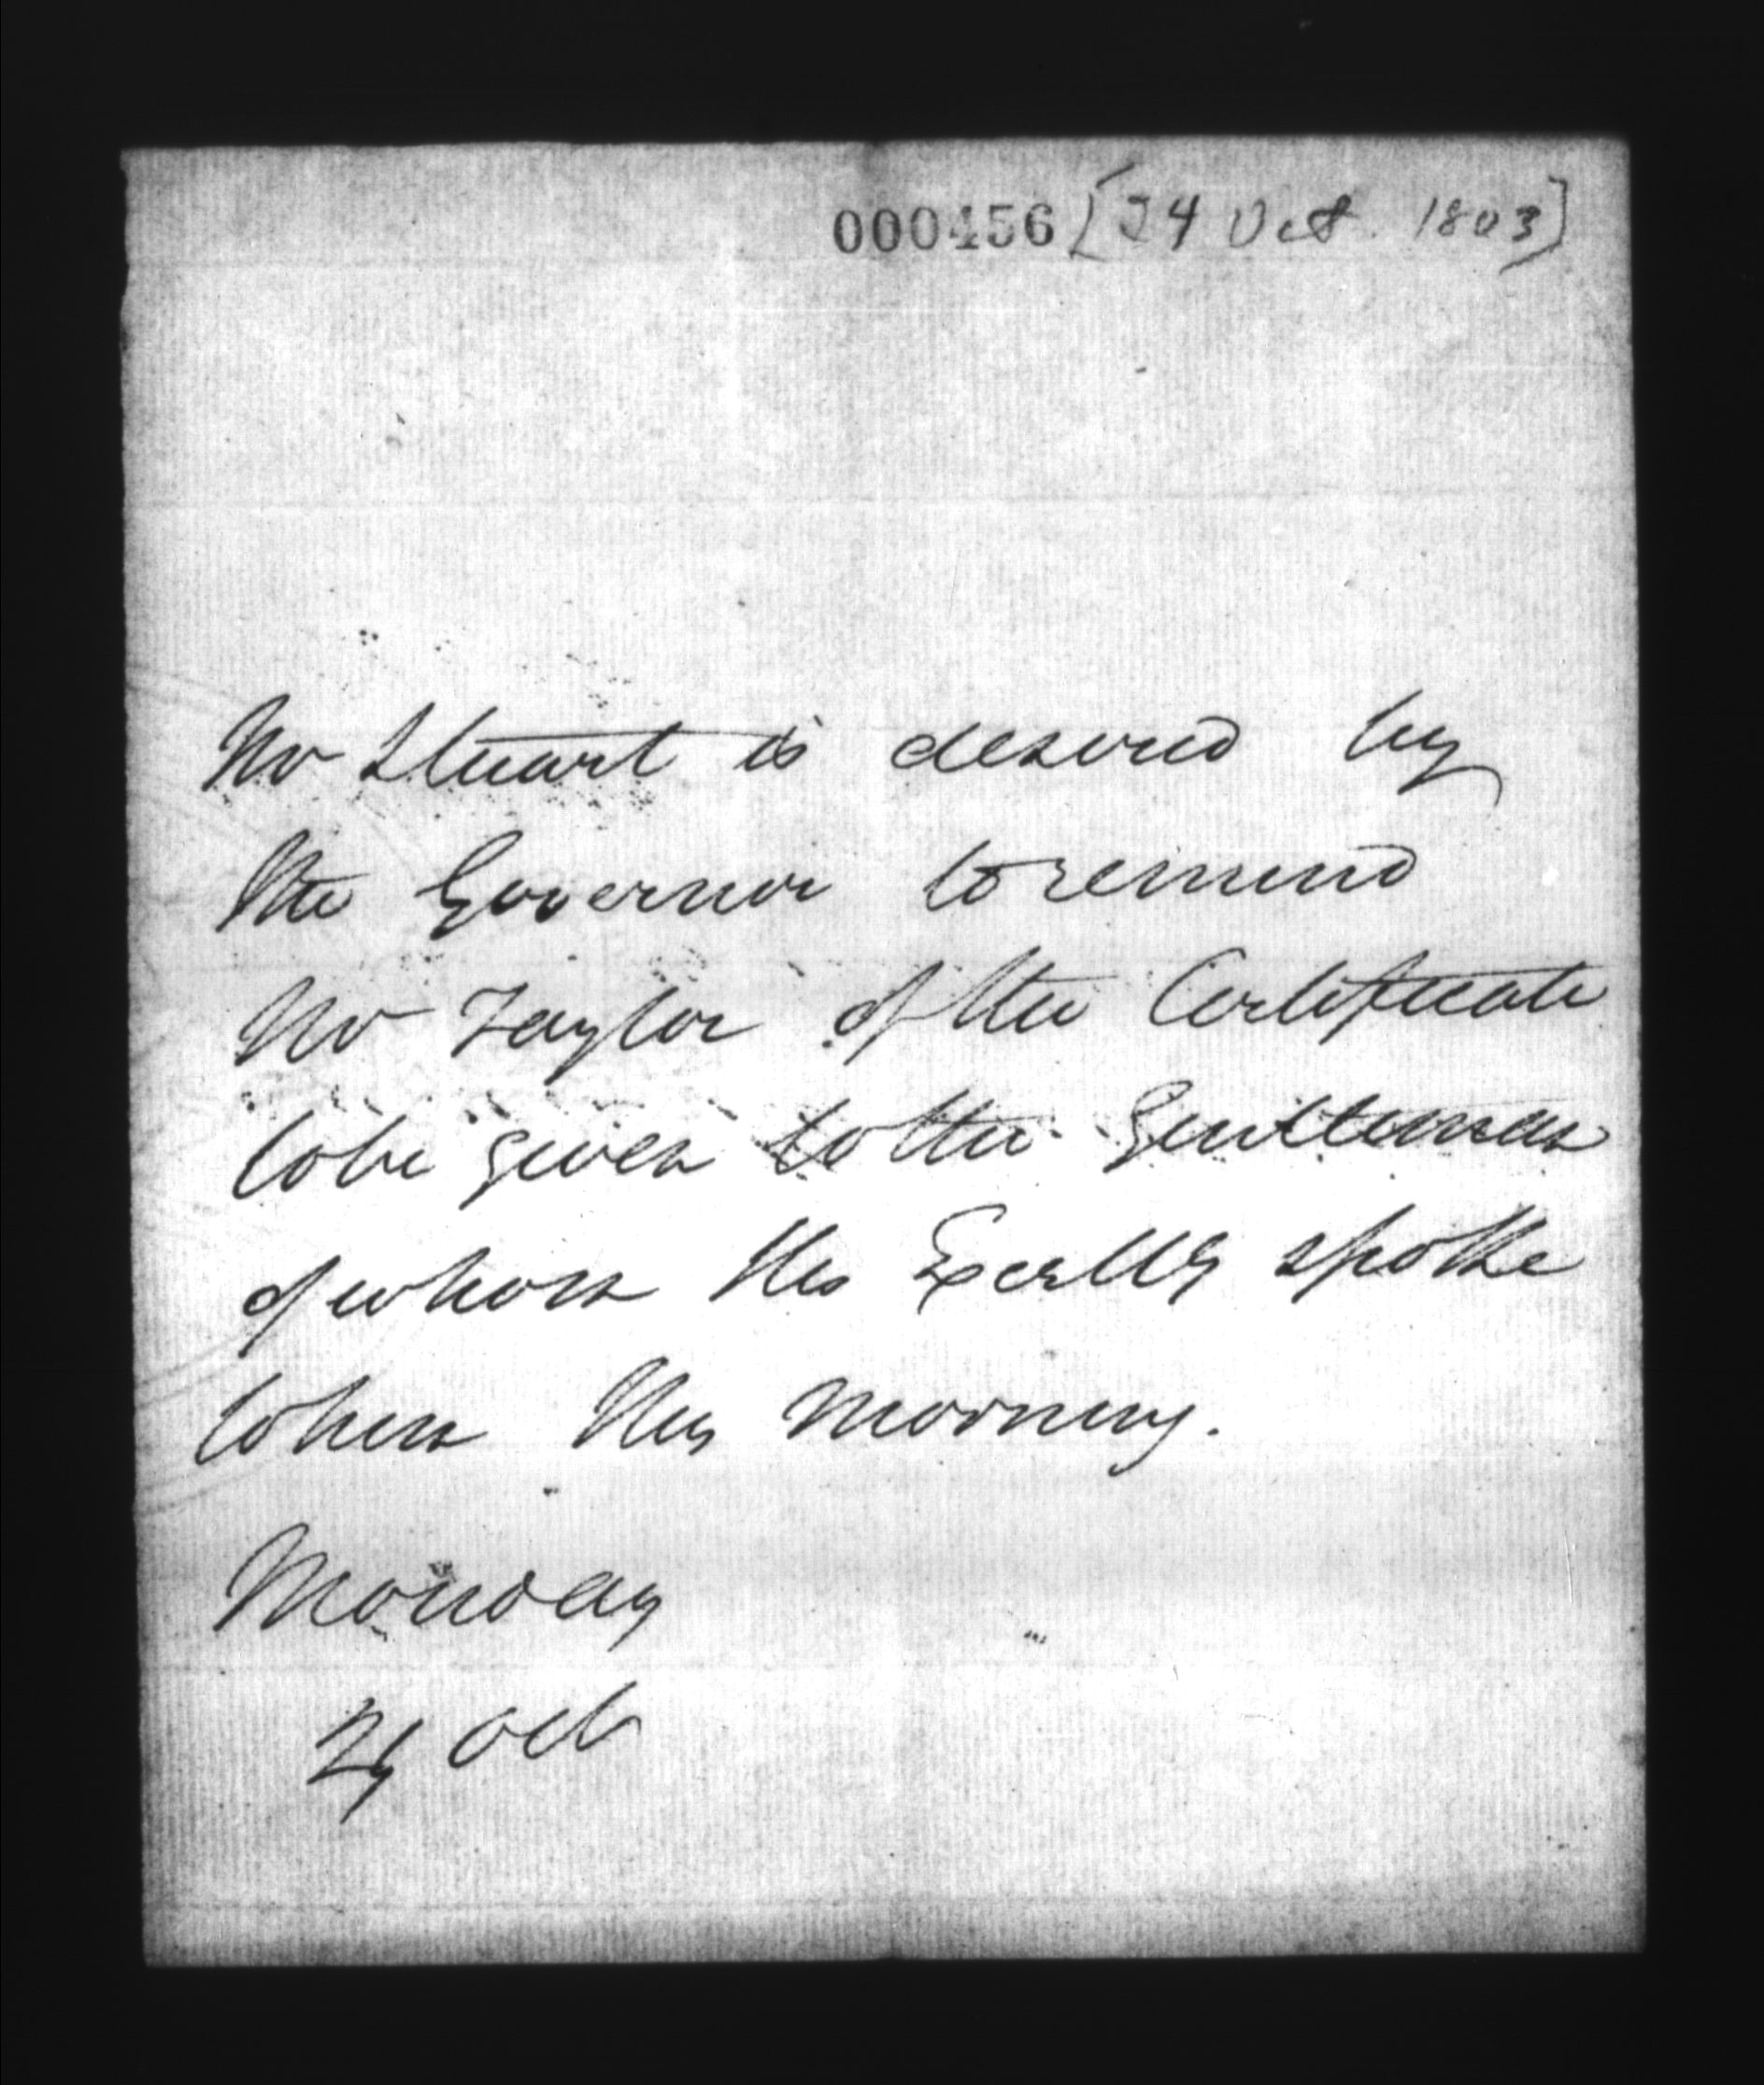 000456 [24 Oct. 1803]
Mr Stuart is desired by
the Governor to remind
Mr Taylor of the Certificate
to be given to the Gentleman
of whom His Exclly spoke
to him this morning.
Monday
24 Oct